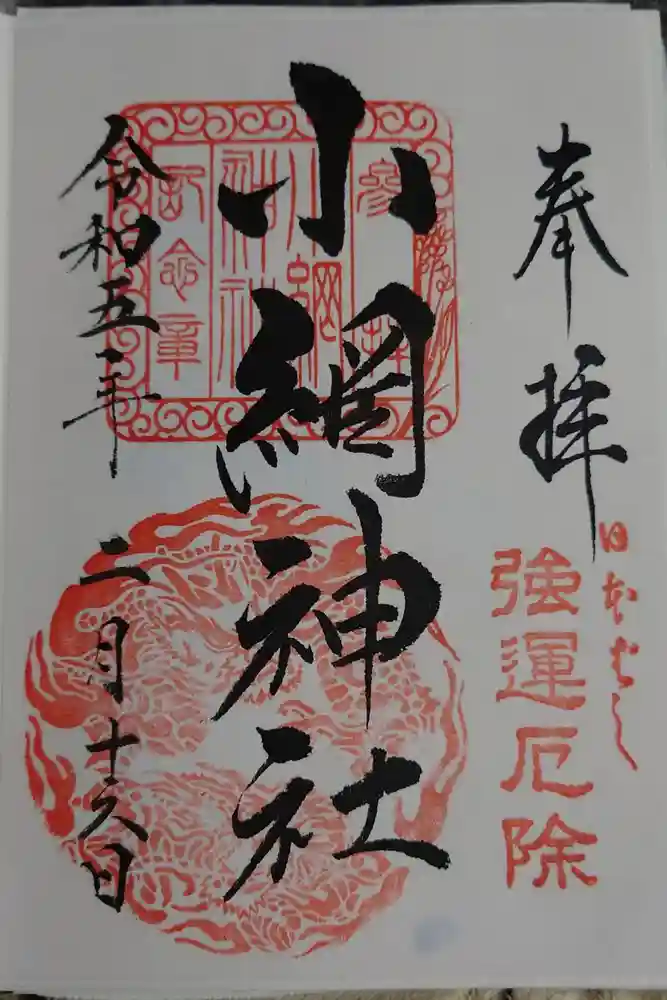 奉拝
日本ばし
強運厄除
小網神社
參拝
小網
神社
記念章
令和五年二月十六日